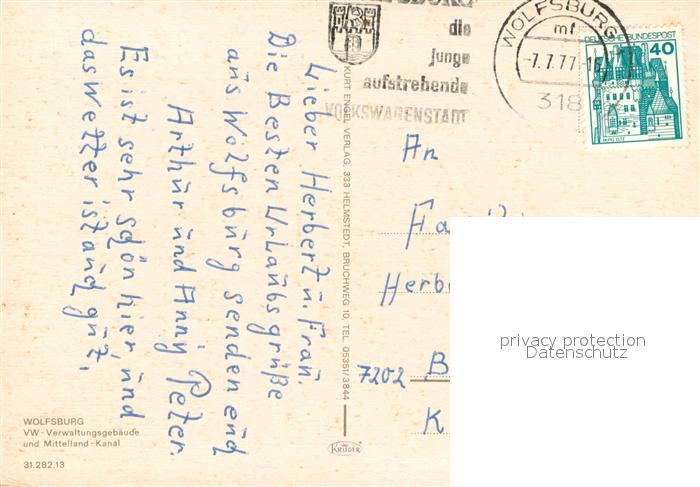 WOLFSBURG
die
junge
aufstrebende
VOLKSWAGENSTADT
WOLFSBURG
mf
-7.7.77-
318
DEUTSCHE BUNDESPOST
40
BURG ELTZ
Lieber Herbert u. Frau.
Die Besten Urlaubsgrüße
aus Wolfsburg senden eud
Arthur und Anny Peter.
Es ist sehr schön hier, und
das Wetter ist auch gut.
KURT ENGEL VERLAG, 333 HELMSTEDT, BRUCHWEG 10, TEL. 05351/3844
An
Fa
Herb
7202 B
K
privacy protection
Datenschutz
WOLFSBURG
VW-Verwaltungsgebäude
und Mittelland-Kanal
31.282.13
KRÜGER